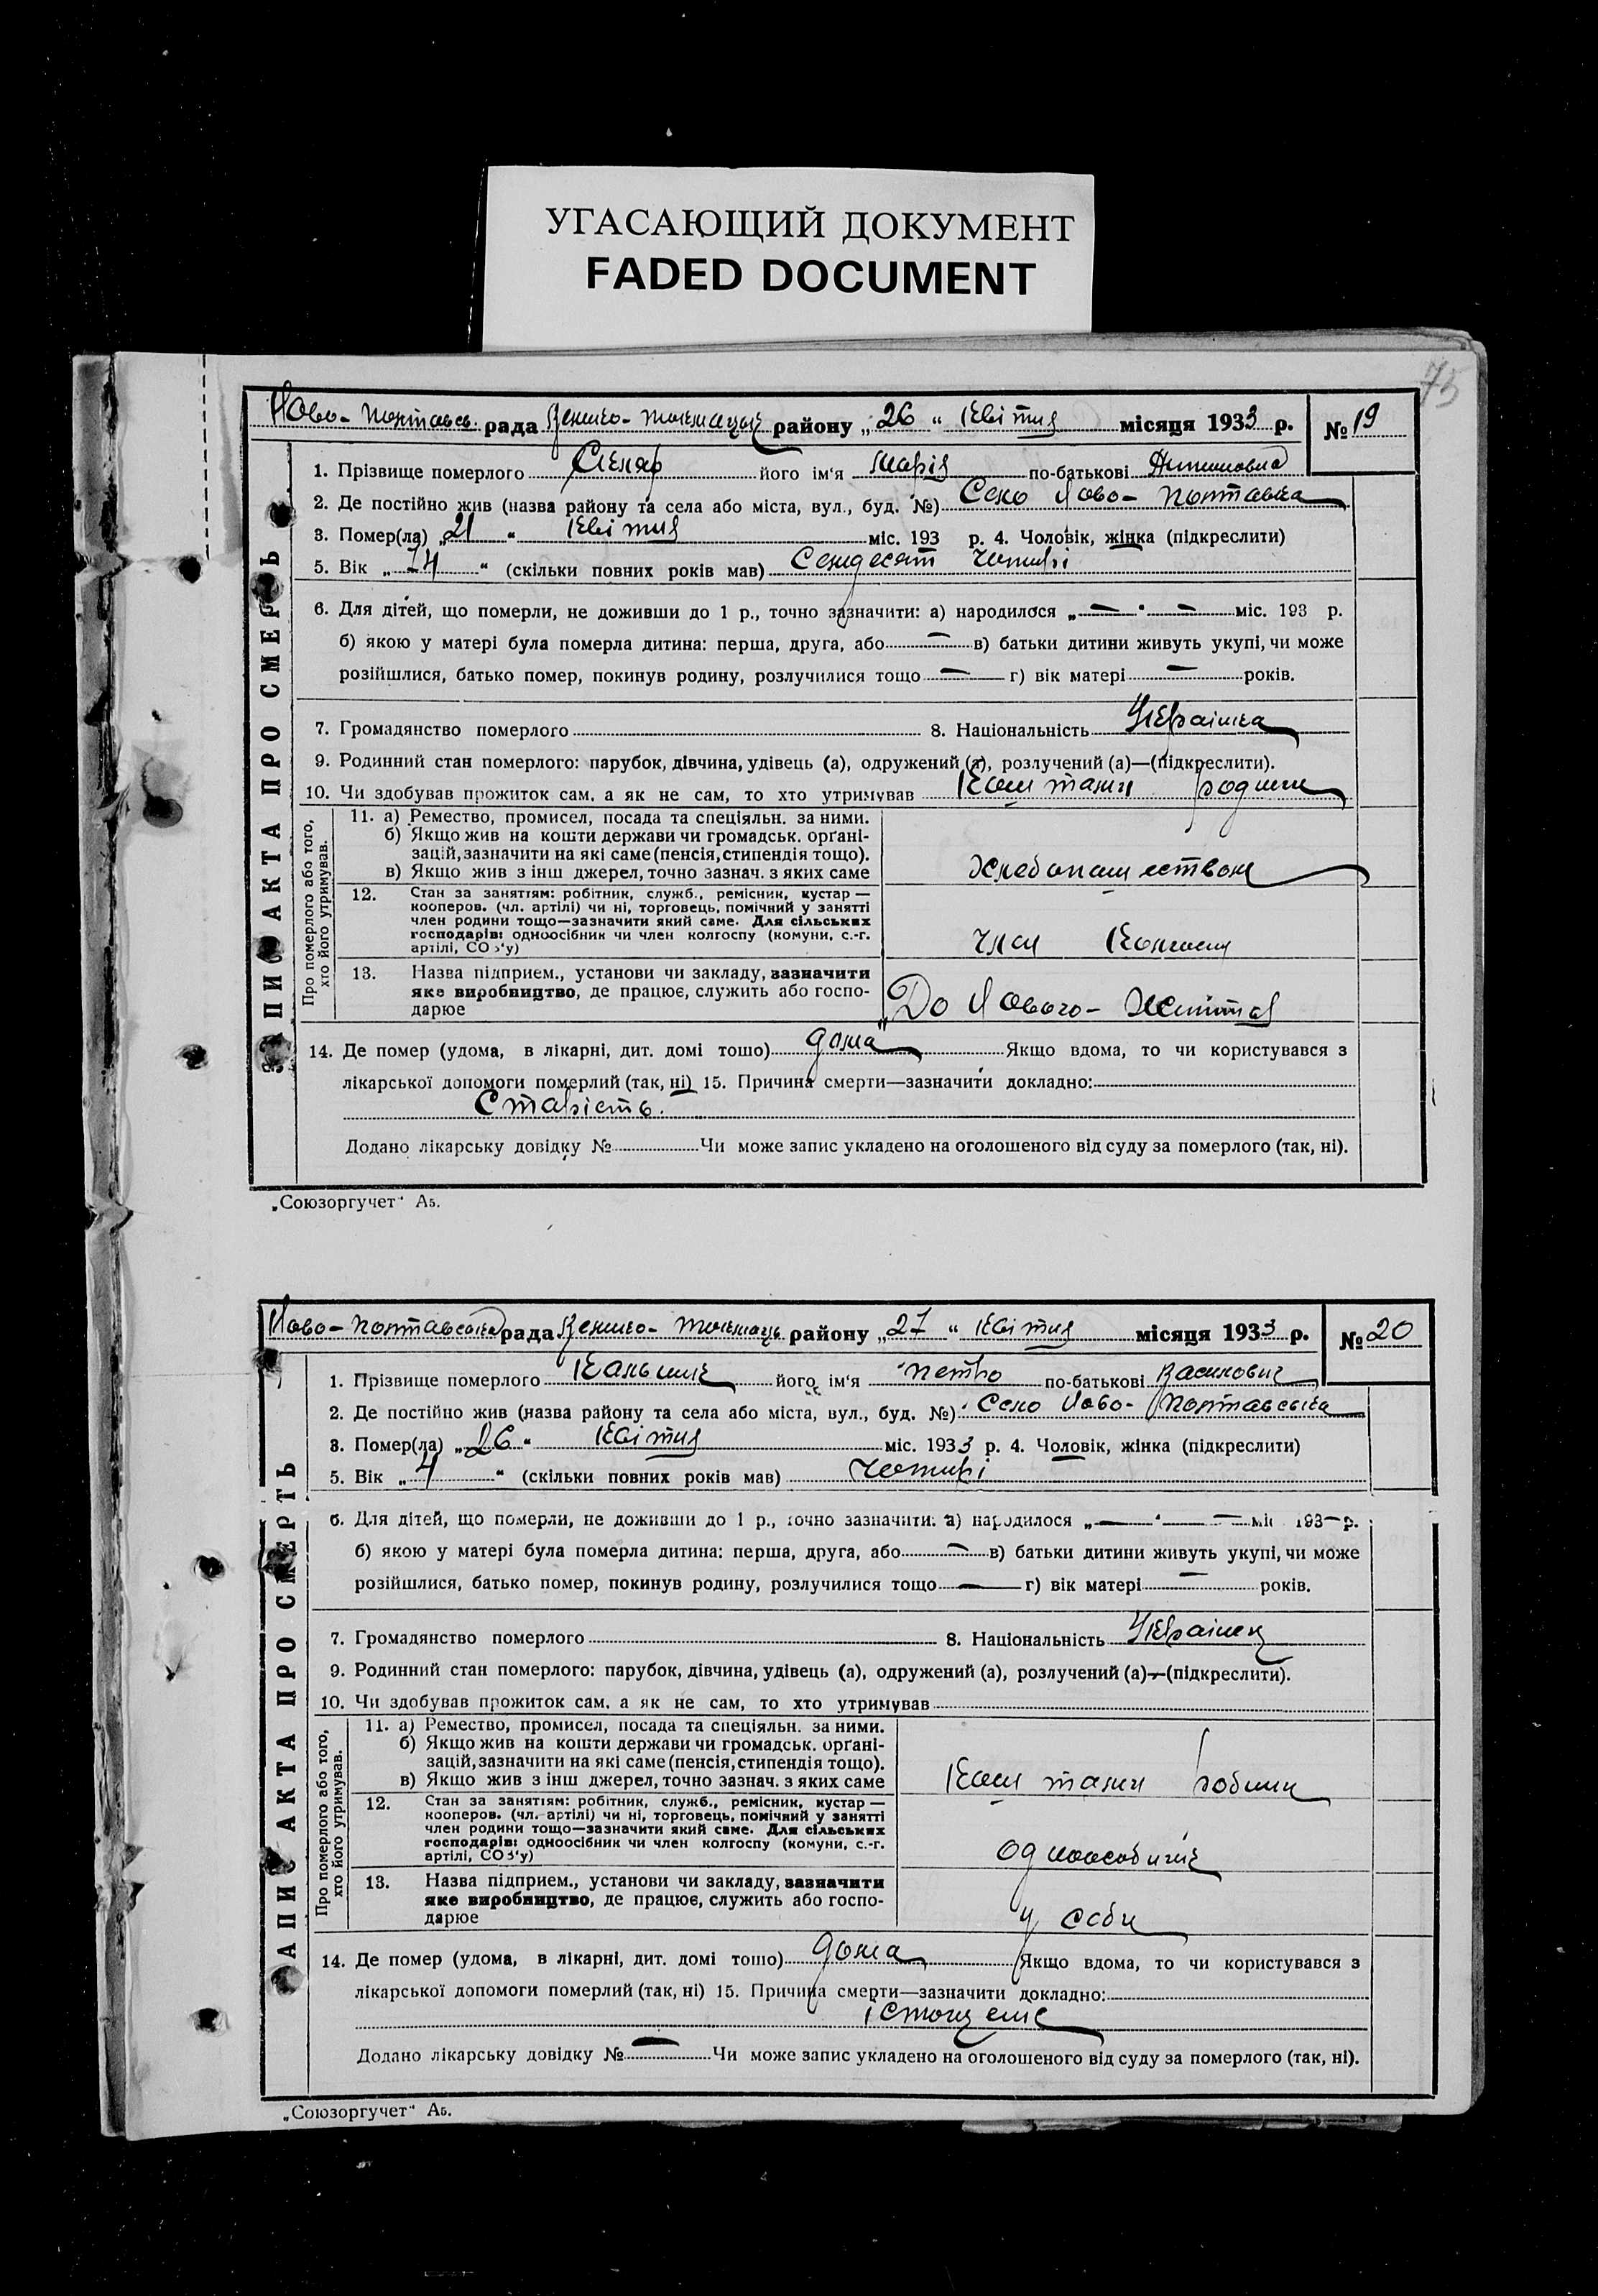 УГАСАЮЩИЙ ДОКУМЕНТ
FADED DOCUMENT
75
Ново-Полтавсь. рада Велико-Токмацьк району „26“ квітня місяця 1933 р. № 19
ЗАПИС АКТА ПРО СМЕРТЬ
1. Прізвище померлого Скляр його ім'я Марія по-батькові
2. Де постійно жив (назва району та села або міста, вул., буд. №) Село Ново-Полтавка
3. Помер(ла) „21“ квітня міс. 193 р. 4. Чоловік, жінка (підкреслити)
5. Вік „74“ (скільки повних років мав) Семдесят чотирі
6. Для дітей, що померли, не доживши до 1 р., точно зазначити: а) народилося „— “ — міс. 193 р.
б) якою у матері була померла дитина: перша, друга, або — в) батьки дитини живуть укупі, чи може
розійшлися, батько помер, покинув родину, розлучилися тощо — г) вік матері — років.
7. Громадянство померлого 8. Національність Українка
9. Родинний стан померлого: парубок, дівчина, удівець (а), одружений (а), розлучений (а)—(підкреслити).
10. Чи здобував прожиток сам, а як не сам, то хто утримував Коштами родини
Про померлого або того, хто його утримував.
11. а) Ремество, промисел, посада та спеціяльн. за ними.
б) Якщо жив на кошти держави чи громадськ. орґані-
зацій, зазначити на які саме (пенсія, стипендія тощо).
в) Якщо жив з інш джерел, точно зазнач. з яких саме
Хлебопашеством
12. Стан за заняттям: робітник, служб., ремісник, кустар —
кооперов. (чл. артілі) чи ні, торговець, помічний у занятті
член родини тощо—зазначити який саме. Для сільських
господарів: одноосібник чи член колгоспу (комуни, с.-г.
артілі, СОЗ'у)
член Колгоспу
13. Назва підприєм., установи чи закладу, зазначити
яке виробництво, де працює, служить або госпо-
дарює
„До Нового-Життя
14. Де помер (удома, в лікарні, дит. домі тощо) дома Якщо вдома, то чи користувався з
лікарської допомоги померлий (так, ні) 15. Причина смерти—зазначити докладно:
Старість.
Додано лікарську довідку № Чи може запис укладено на оголошеного від суду за померлого (так, ні).
„Союзоргучет“ А5.
Ново-Полтавська рада Велико-Токмаць району „27“ квітня місяця 1933 р. № 20
ЗАПИС АКТА ПРО СМЕРТЬ
1. Прізвище померлого його ім'я Петро по-батькові Василович
2. Де постійно жив (назва району та села або міста, вул., буд. №) Село Ново-Полтавська
3. Помер(ла) „26“ квітня міс. 1933 р. 4. Чоловік, жінка (підкреслити)
5. Вік „4“ (скільки повних років мав) Чотирі
6. Для дітей, що померли, не доживши до 1 р., точно зазначити: а) народилося „— “ — — міс 193— р.
б) якою у матері була померла дитина: перша, друга, або — в) батьки дитини живуть укупі, чи може
розійшлися, батько помер, покинув родину, розлучилися тощо — г) вік матері — років.
7. Громадянство померлого 8. Національність Українец
9. Родинний стан померлого: парубок, дівчина, удівець (а), одружений (а), розлучений (а)—(підкреслити).
10. Чи здобував прожиток сам, а як не сам, то хто утримував
Про померлого або того, хто його утримував.
11. а) Ремество, промисел, посада та спеціяльн. за ними.
б) Якщо жив на кошти держави чи громадськ. орґані-
зацій, зазначити на які саме (пенсія, стипендія тощо).
в) Якщо жив з інш джерел, точно зазнач. з яких саме
Коштами
12. Стан за заняттям: робітник, служб., ремісник, кустар —
кооперов. (чл. артілі) чи ні, торговець, помічний у занятті
член родини тощо—зазначити який саме. Для сільських
господарів: одноосібник чи член колгоспу (комуни, с.-г.
артілі, СОЗ'у)
одноособник
13. Назва підприєм., установи чи закладу, зазначити
яке виробництво, де працює, служить або госпо-
дарює
у себи
14. Де помер (удома, в лікарні, дит. домі тощо) дома Якщо вдома, то чи користувався з
лікарської допомоги померлий (так, ні) 15. Причина смерти—зазначити докладно:
Істощеніє
Додано лікарську довідку № — Чи може запис укладено на оголошеного від суду за померлого (так, ні).
„Союзоргучет“ А5.